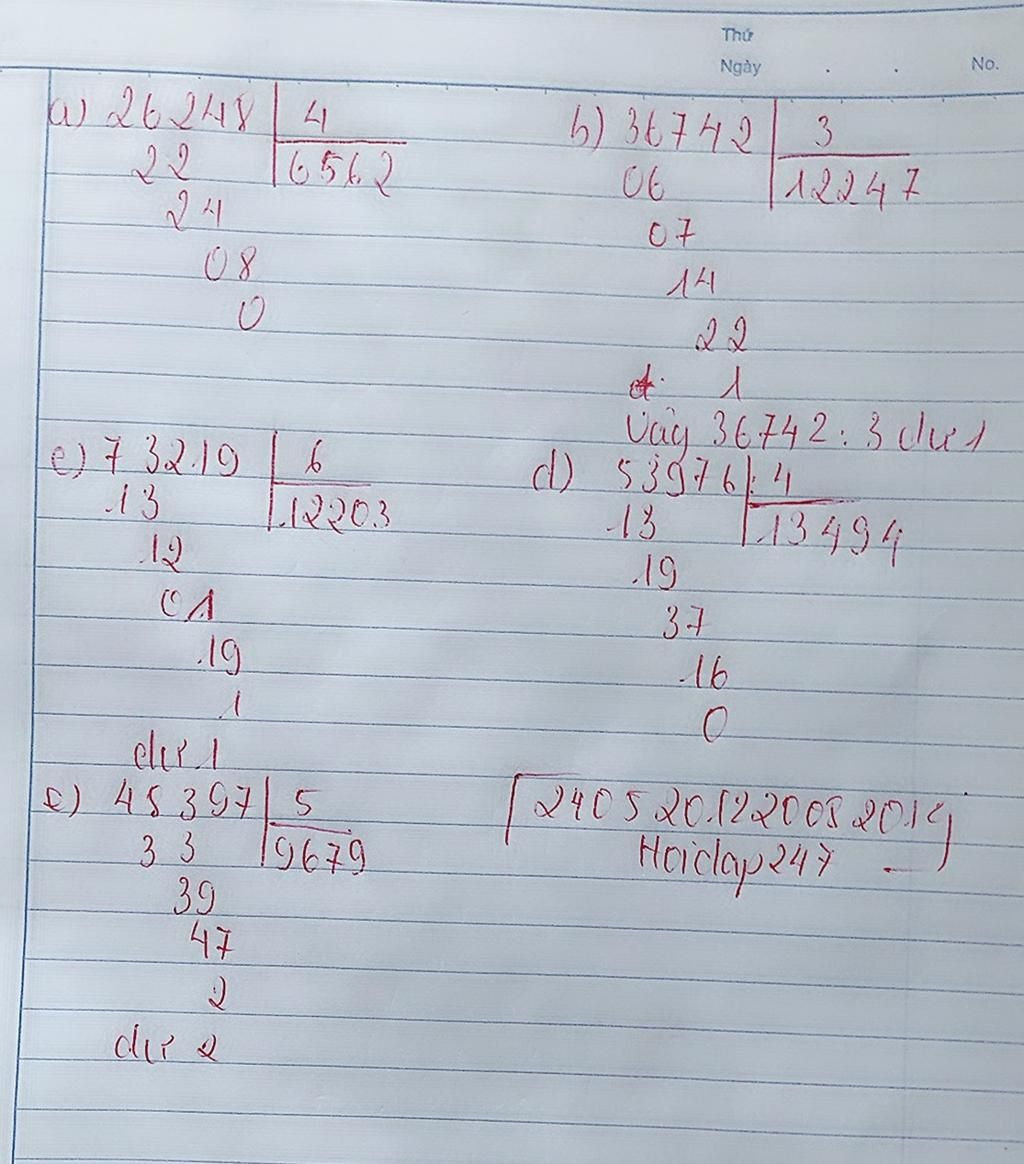 Thứ
Ngày . . No.
a) 26248 4
22 6562
24
08
0
b) 36742 3
06 12247
07
14
22
1
Vậy 36742 : 3 dư 1
c) 73219 6
13 12203
12
01
19
1
dư 1
d) 53976 4
13 13494
19
37
16
0
e) 48397 5
33 9679
39
47
2
dư 2
Hoidap247